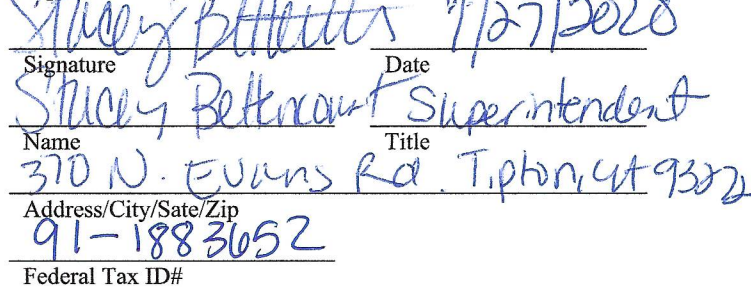 Stacey Bettencourt 7/27/2020
Signature Date
Stacey Bettencourt Superintendent
Name Title
370 N. Evans Rd. Tipton, CA
Address/City/Sate/Zip
91-1883652
Federal Tax ID#